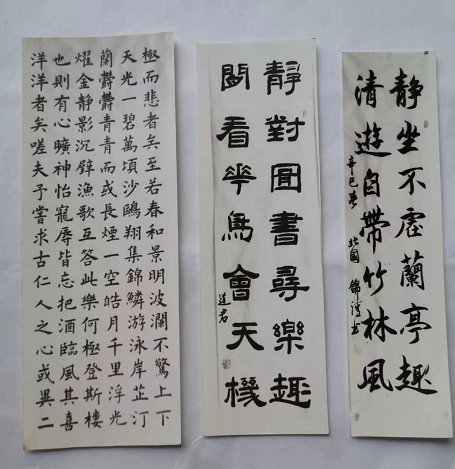 静坐不虛蘭亭趣
清遊自帶竹林風
辛巳春
北國
靜對圖書尋樂趣
閒看華鳥會天機
道君
極而悲者矣至若春和景明波瀾不驚上下
天光一碧萬頃沙鷗翔集錦鱗游泳岸芷汀
蘭鬱鬱青青而或長煙一空皓月千里浮光
燿金静影沉璧漁歌互答此樂何極登斯樓
也則有心曠神怡寵辱皆忘把酒臨風其喜
洋洋者矣嗟夫予嘗求古仁人之心或異二